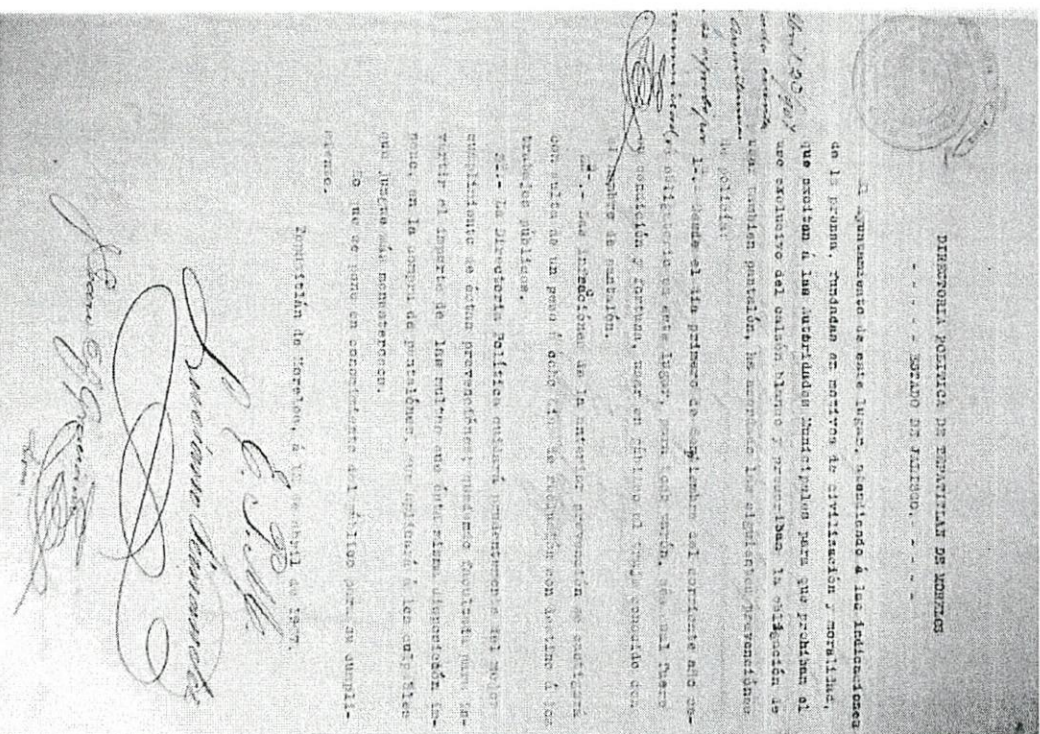 DIRECTORIA POLITICA DE TEPATITLAN DE MORELOS
- - - - - ESTADO DE JALISCO. - - - -
El Ayuntamiento de este lugar, atendiendo á las indicaciones
de la prensa, fundadas en motivos de civilización y moralidad,
que excitan á las Autoridades Municipales para que prohiban el
uso exclusivo del calsón blanco y prescriban la obligación de
usar tambien pantalón, ha acordado las siguientes prevenciónes
de policía:
1ª.- Desde el día primero de Septiembre del corriente año se-
rá obligatorio en este lugar, para todo varón, sea cual fuere
su condición y fortuna, usar en público el traje conocido con
el nombre de pantalón.
2ª.- Las infracciónes de la anterior prevención se castigará
con multa de un peso ú ocho días de reclusión con destino á los
trabajos públicos.
3ª.- La Directoria Política cuidará prudentemente del mejor
cumplimiento de éstas prevenciónes; quedando facultada para in-
vertir el importe de las multas que ésta misma disposición im-
pone, en la compra de pantalónes, que aplicará á los culpables
que juzgue más menesterosos.
Lo que se pone en conocimiento del público para su cumpli-
miento.
Tepatitlán de Morelos, á de abril de 1907.
Abril 20/907
se aprueba por